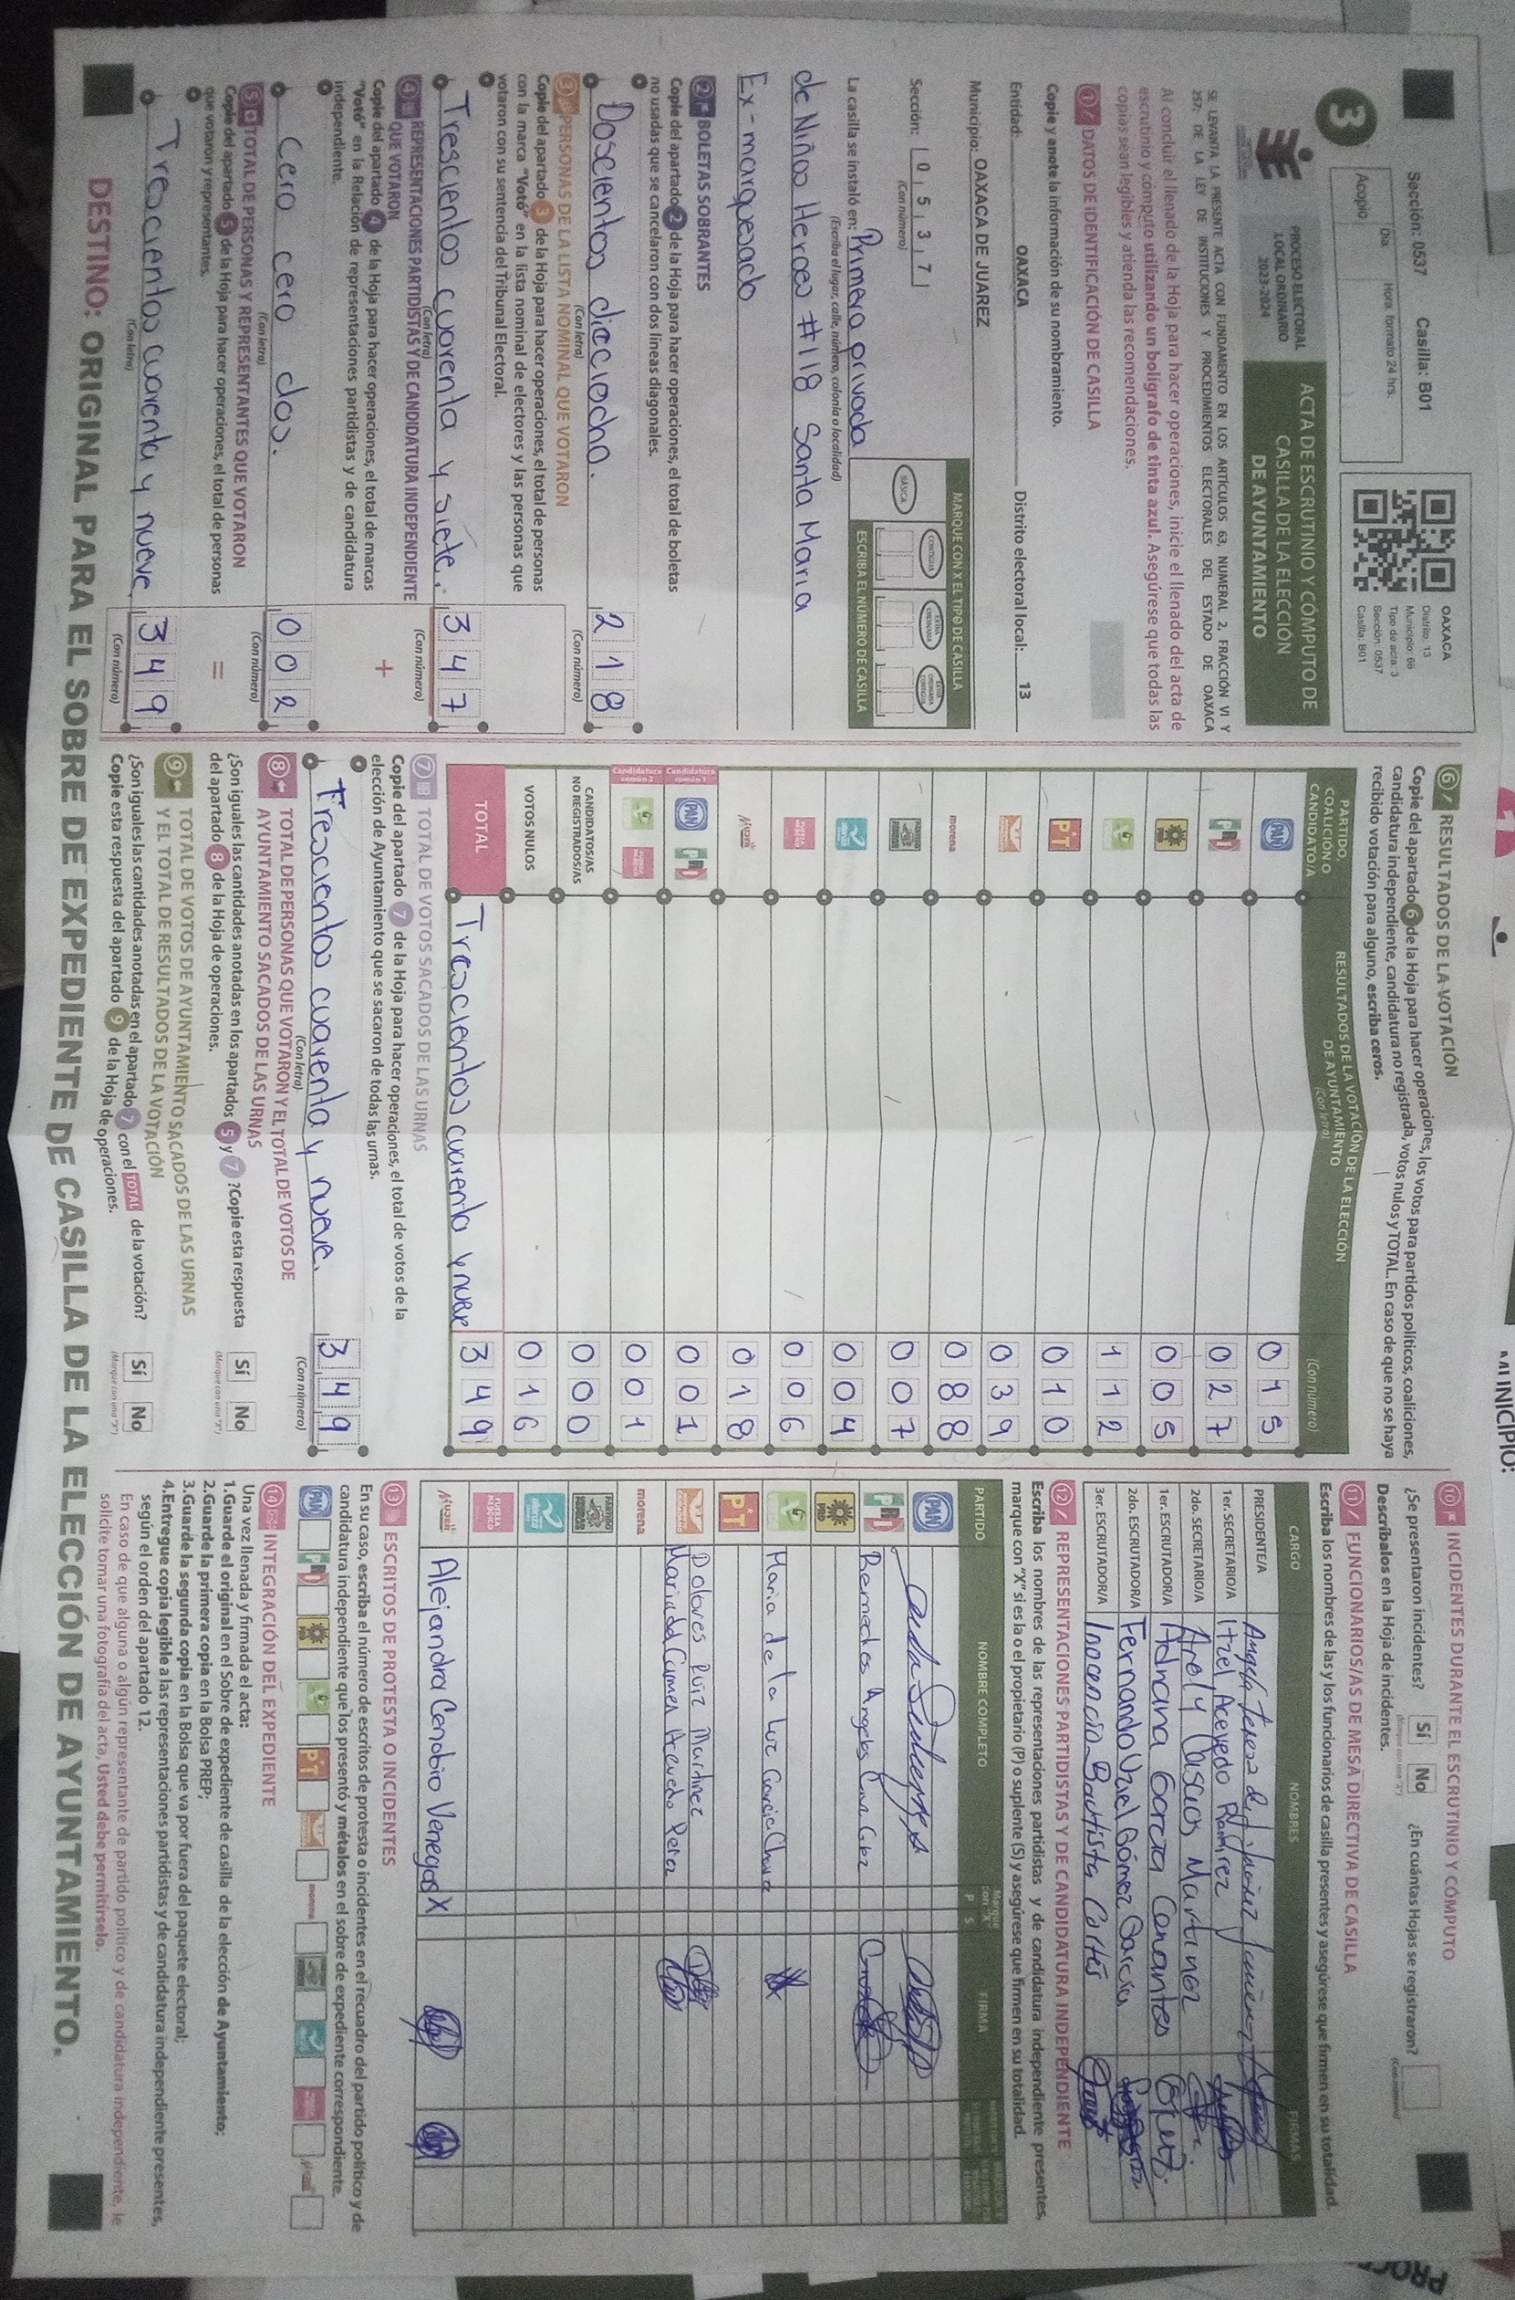 MUNICIPIO:
Sección: 0537 Casilla: B01
Día Hora: formato 24 hrs.
Acopio
3
OAXACA
Distrito: 13
Municipio: 66
Tipo de acta: 3
Sección: 0537
Casilla: B01
PROCESO ELECTORAL
LOCAL ORDINARIO
2023-2024
ACTA DE ESCRUTINIO Y CÓMPUTO DE
CASILLA DE LA ELECCIÓN
DE AYUNTAMIENTO
SE LEVANTA LA PRESENTE ACTA CON FUNDAMENTO EN LOS ARTÍCULOS 63, NUMERAL 2, FRACCIÓN VI Y
257; DE LA LEY DE INSTITUCIONES Y PROCEDIMIENTOS ELECTORALES DEL ESTADO DE OAXACA
Al concluir el llenado de la Hoja para hacer operaciones, inicie el llenado del acta de
escrutinio y cómputo utilizando un bolígrafo de tinta azul. Asegúrese que todas las
copias sean legibles y atienda las recomendaciones.
1 DATOS DE IDENTIFICACIÓN DE CASILLA
Copie y anote la información de su nombramiento.
Entidad: OAXACA Distrito electoral local: 13
Municipio: OAXACA DE JUÁREZ
Sección: 0 5 3 7
(Con número)
MARQUE CON X EL TIPO DE CASILLA
BÁSICA
CONTIGUA
ESCRIBA EL NÚMERO DE CASILLA
La casilla se instaló en: Primera privada
(Escriba el lugar, calle, número, colonia o localidad)
de Niños Heroes #118 Santa Maria
Ex-marquesado
2 BOLETAS SOBRANTES
Copie del apartado 2 de la Hoja para hacer operaciones, el total de boletas
no usadas que se cancelaron con dos líneas diagonales.
Doscientos dieciocho. 2 1 8
(Con letra) (Con número)
3 PERSONAS DE LA LISTA NOMINAL QUE VOTARON
Copie del apartado 3 de la Hoja para hacer operaciones, el total de personas
con la marca "Votó" en la lista nominal de electores y las personas que
votaron con su sentencia del Tribunal Electoral.
Trescientos cuarenta y siete. 3 4 7
(Con letra) (Con número)
4 REPRESENTACIONES PARTIDISTAS Y DE CANDIDATURA INDEPENDIENTE
QUE VOTARON
Copie del apartado 4 de la Hoja para hacer operaciones, el total de marcas
"Votó" en la Relación de representaciones partidistas y de candidatura
independiente.
+
cero cero dos. 0 0 2
(Con letra) (Con número)
5 TOTAL DE PERSONAS Y REPRESENTANTES QUE VOTARON
Copie del apartado 5 de la Hoja para hacer operaciones, el total de personas
que votaron y representantes.
=
Trescientos cuarenta y nueve. 3 4 9
(Con letra) (Con número)
6 RESULTADOS DE LA VOTACIÓN
Copie del apartado 6 de la Hoja para hacer operaciones, los votos para partidos políticos, coaliciones,
candidatura independiente, candidatura no registrada, votos nulos y TOTAL. En caso de que no se haya
recibido votación para alguno, escriba ceros.
PARTIDO,
COALICIÓN O
CANDIDATO/A
RESULTADOS DE LA VOTACIÓN DE LA ELECCIÓN
DE AYUNTAMIENTO
(Con letra) (Con número)
PAN 0 1 5
PRI 0 2 7
PRD 0 0 5
1 1 2
PT 0 1 0
0 3 9
morena 0 8 8
0 0 7
0 0 4
FUERZA MÉXICO 0 0 6
Mujer 0 1 8
Candidatura común 1 PAN PRI 0 0 1
Candidatura común 2 FUERZA MÉXICO 0 0 1
CANDIDATOS/AS
NO REGISTRADOS/AS 0 0 0
VOTOS NULOS 0 1 6
TOTAL Trescientos cuarenta y nueve 3 4 9
7 TOTAL DE VOTOS SACADOS DE LAS URNAS
Copie del apartado 7 de la Hoja para hacer operaciones, el total de votos de la
elección de Ayuntamiento que se sacaron de todas las urnas.
Trescientos cuarenta y nueve. 3 4 9
(Con letra) (Con número)
8 TOTAL DE PERSONAS QUE VOTARON Y EL TOTAL DE VOTOS DE
AYUNTAMIENTO SACADOS DE LAS URNAS
¿Son iguales las cantidades anotadas en los apartados 5 y 7? Copie esta respuesta
del apartado 8 de la Hoja de operaciones.
Sí No
(Marque con una "X")
9 TOTAL DE VOTOS DE AYUNTAMIENTO SACADOS DE LAS URNAS
Y EL TOTAL DE RESULTADOS DE LA VOTACIÓN
¿Son iguales las cantidades anotadas en el apartado 7 con el TOTAL de la votación?
Copie esta respuesta del apartado 9 de la Hoja de operaciones.
Sí No
(Marque con una "X")
10 INCIDENTES DURANTE EL ESCRUTINIO Y CÓMPUTO
¿Se presentaron incidentes? Sí No ¿En cuántas Hojas se registraron?
(Marque con una "X") (Con número)
Descríbalos en la Hoja de incidentes.
11 FUNCIONARIOS/AS DE MESA DIRECTIVA DE CASILLA
Escriba los nombres de las y los funcionarios de casilla presentes y asegúrese que firmen en su totalidad.
CARGO NOMBRES FIRMAS
PRESIDENTE/A Angela Teresa
1er. SECRETARIO/A Itzel Acevedo Ramirez
2do. SECRETARIO/A Arely Martinez
1er. ESCRUTADOR/A Adriana Garcia
2do. ESCRUTADOR/A Fernando Uziel Gómez Garcia
3er. ESCRUTADOR/A Inocencio Bautista Cortés
12 REPRESENTACIONES PARTIDISTAS Y DE CANDIDATURA INDEPENDIENTE
Escriba los nombres de las representaciones partidistas y de candidatura independiente presentes,
marque con "X" si es la o el propietario (P) o suplente (S) y asegúrese que firmen en su totalidad.
PARTIDO NOMBRE COMPLETO Marque con "X" P S FIRMA
PAN
PRI Remedios Angeles
PRD
Maria de la Luz Garcia
PT
Dolores Ruiz Martinez
Maria del Carmen Acevedo Perez
morena
FUERZA MÉXICO
Mujer Alejandra Cenobio Venegas X
13 ESCRITOS DE PROTESTA O INCIDENTES
En su caso, escriba el número de escritos de protesta o incidentes en el recuadro del partido político y de
candidatura independiente que los presentó y métalos en el sobre de expediente correspondiente.
PAN PRI PRD PT morena
14 INTEGRACIÓN DEL EXPEDIENTE
Una vez llenada y firmada el acta:
1.Guarde el original en el Sobre de expediente de casilla de la elección de Ayuntamiento;
2.Guarde la primera copia en la Bolsa PREP;
3.Guarde la segunda copia en la Bolsa que va por fuera del paquete electoral;
4.Entregue copia legible a las representaciones partidistas y de candidatura independiente presentes,
según el orden del apartado 12.
En caso de que alguna o algún representante de partido político y de candidatura independiente, le
solicite tomar una fotografía del acta, Usted debe permitírselo.
DESTINO: ORIGINAL PARA EL SOBRE DE EXPEDIENTE DE CASILLA DE LA ELECCIÓN DE AYUNTAMIENTO.